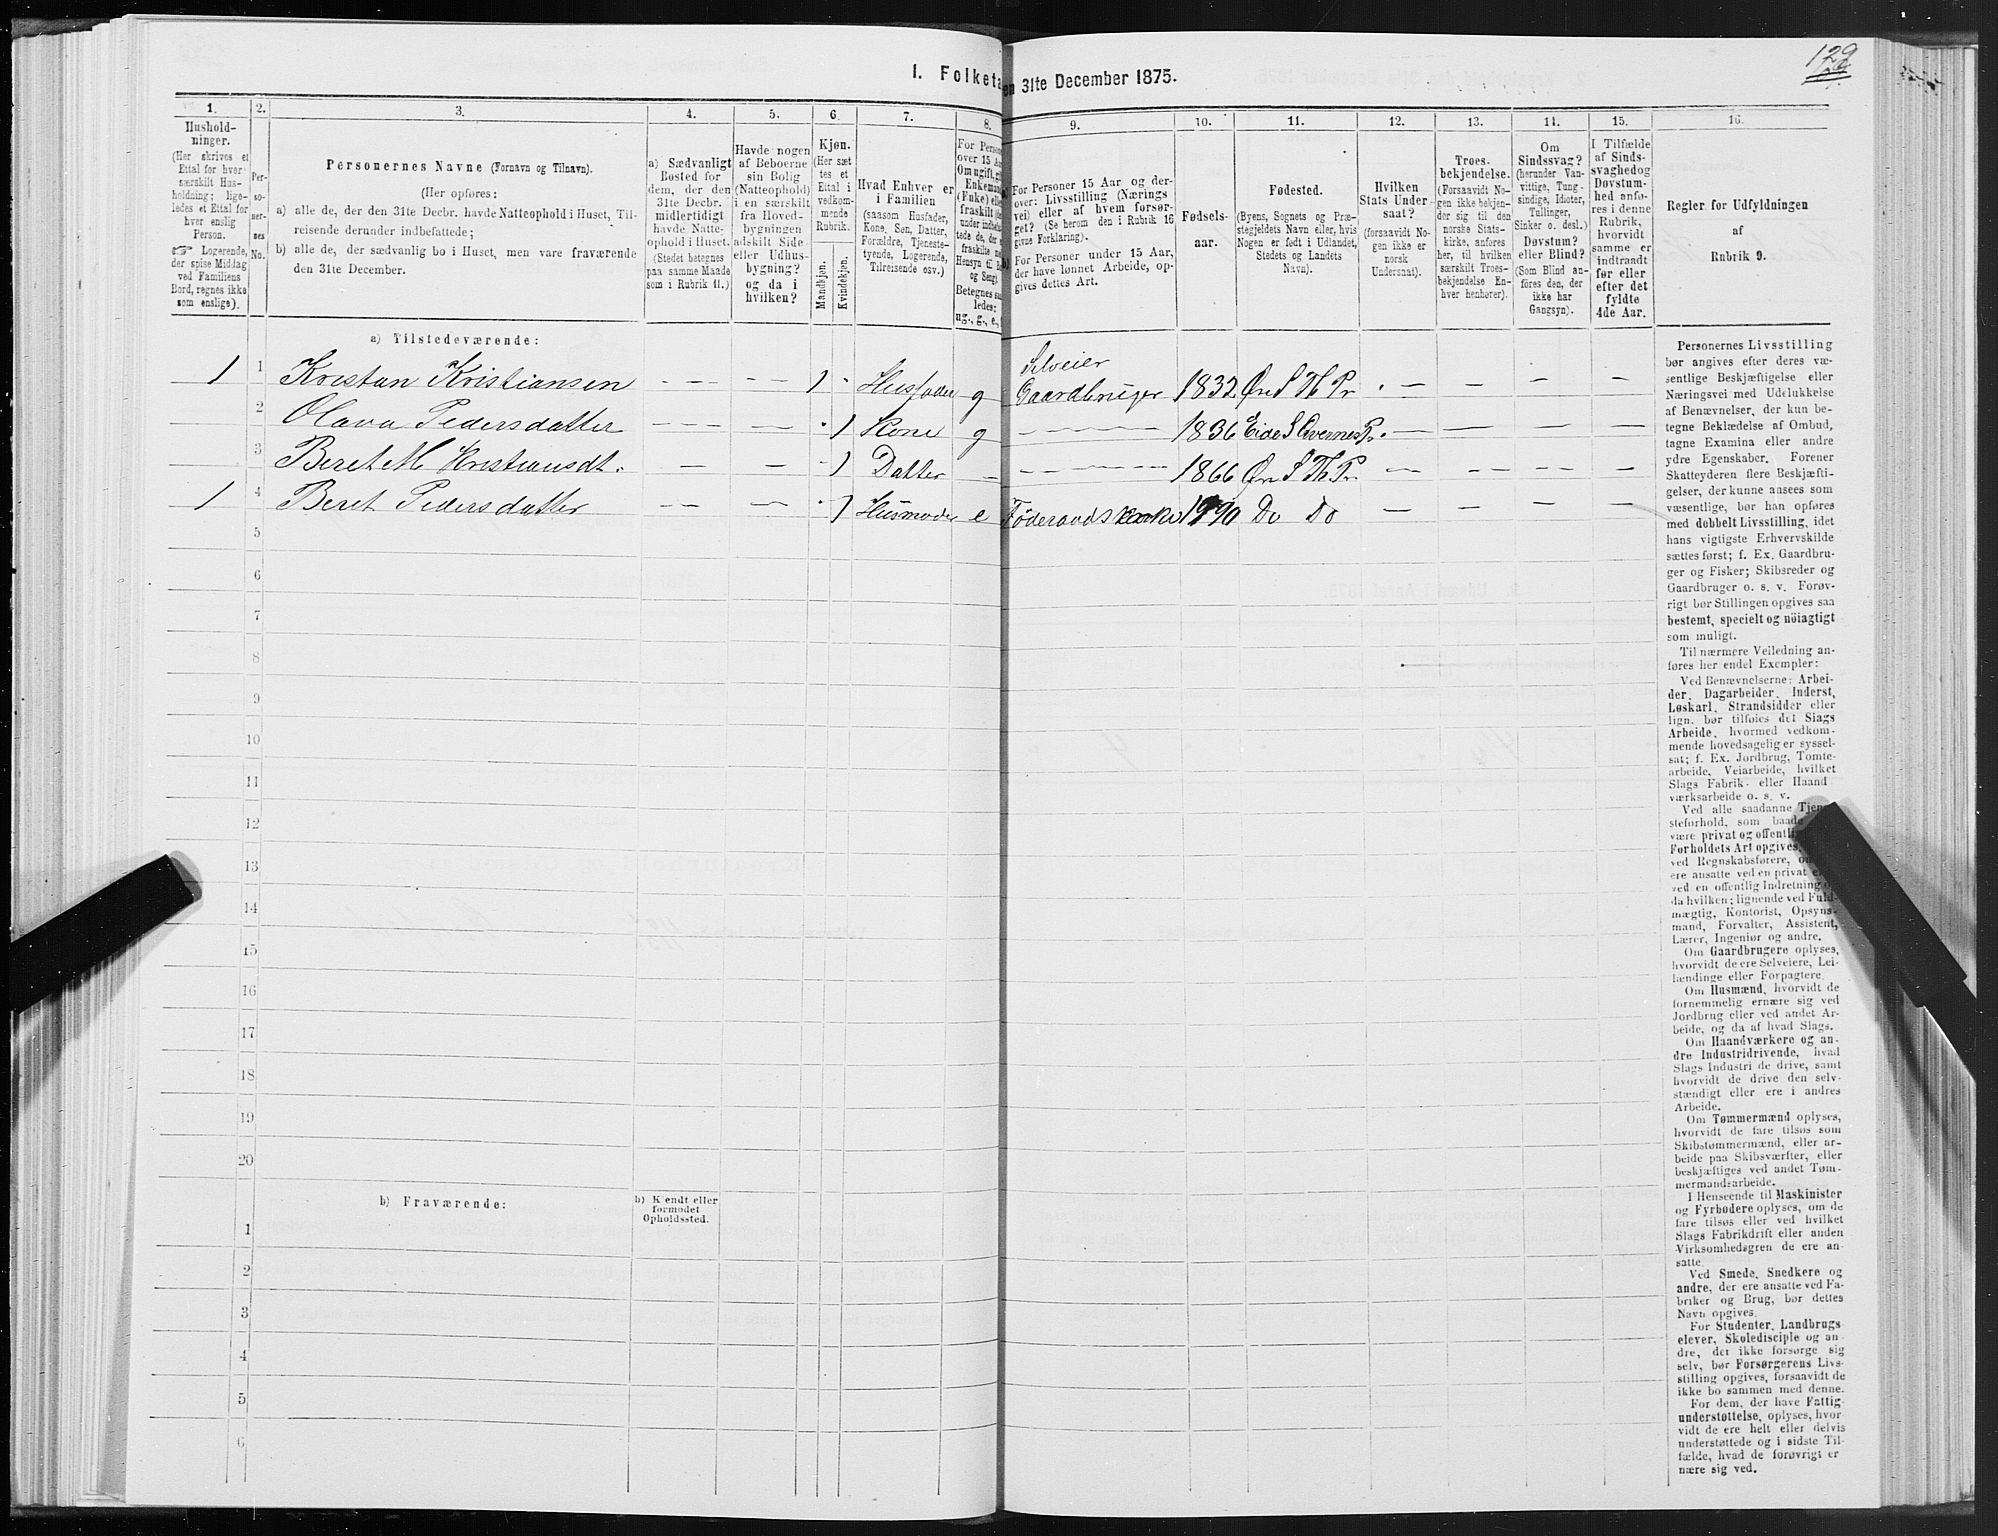 129
I. Folketa
en 31te December 1875.
1. 2. 3. 4. 5. 6. 7. 8. 9. 10. 11. 12. 13. 14. 15. 16.
Hushold-
ninger.
(Her skrives et
Ettal for hver
særskilt Hus-
holdning; lige-
ledes et Ettal for
hver enslig
Person.
☞ Logerende,
der spise Middag
ved Familiens
Bord, regnes ikke
som enslige).
Per-
so-
ner-
nes
No.
Personernes Navne (Fornavn og Tilnavn).
(Her opføres:
a) alle de, der den 31te Decbr. havde Natteophold i Huset, Til-
reisende derunder indbefattede;
b) alle de, der sædvanlig bo i Huset, men vare fraværende
den 31te December.
a) Sædvanligt
Bosted for
dem, der den
31te Decbr.
midlertidigt
havde Natte-
ophold i Huset.
(Stedet betegnes
paa samme Maade
som i Rubrik 11.)
Havde nogen
af Beboerne
sin Bolig
(Natteophold)
i en særskilt
fra Hoved-
bygningen
adskilt Side-
eller Udhus-
bygning?
og da i
hvilken?
Kjøn.
(Her sæt
tes et
Ettal i
vedkom-
mende
Rubrik.
Mandkjøn.
Kvindekjøn.
Hvad Enhver er
i Familien
(saasom Husfader,
Kone, Søn, Datter,
Forældre, Tjeneste-
tyende, Logerende,
Tilreisende osv.)
For Person
over 15 Aa
Om ugift, gi
Enkemand
(Enke) elle
fraskilt
under indbefa
tede de, der
fraskilte
Hensyn til B
og Seng).
Betegnes saa
ledes:
ug., g., e.,
For Personer 15 Aar og der-
over: Livsstilling (Nærings
vei) eller af hvem forsør-
get? (Se herom den i Rubrik 16
givne Forklaring).
For Personer under 15 Aar,
der have lønnet Arbeide, op-
gives dettes Art.
Fødsels-
aar.
Fødested.
(Byens, Sognets og Præ-
stegjeldets Navn eller, hvis
Nogen er født i Udlandet,
Stedets og Landets
Navn).
Hvilken
Stats Under-
saat?
(forsaavidt No-
gen ikke er
norsk
Undersaat).
Troes-
bekjendelse.
(Forsaavidt No-
gen ikke bekjen-
der sig til den
norske Stats-
kirke, anføres
her, til hvilken
særskilt Troes-
bekjendelse En-
hver henhører).
Om
Sindssvag?
(herunder Van-
vittige, Tung-
sindige, Idioter,
Tullinger,
Sinker o. desl.)
Døvstum?
eller Blind?
(Som Blind an-
føres den, der
ikke har
Gangsyn).
I Tilfælde
af Sinds-
svaghed og
Døvstum-
hed anfø-
res i denne
Rubrik,
hvorvidt
samme er
indtraadt
før eller
efter det
fyldte
4de Aar.
Regler for Udfyldningen
af
Rubrik 9.
a) Tilstedeværende:
Selveier
1 1 Kristan Kristiansen — — 1 Husfader g Gaardbruger 1832 Øre S Th Pr — — — —
2 Olava Pedersdatter — — 1 Kone g — 1836 Eide S Qvernes Pr. — — — —
3 Beret M Kristiansdt. — — 1 Datter — — 1866 Øre S Th Pr — — — —
1 4 Beret Pedersdatter — — 1 Husmoder e Föderaads Do Do — — — —
5
6
7
8
9
10
11
12
13
14
15
16
17
18
19
20
b) Fraværende:
b) Kjendt eller
formodet
Opholdssted.
1
2
3
4
5
6
Personernes Livsstilling
bør angives efter deres væ-
sentlige Beskjæftigelse eller
Næringsvei med Udelukkelse
af Benævnelser, der kun be-
tegne Beklædelse af Ombud,
tagne Examina eller andre
ydre Egenskaber. Forener
Skatteyderen flere Beskjæfti-
gelser, der kunne ansees som
væsentlige, bør han opføres
med dobbelt Livsstilling, idet
hans vigtigste Erhvervskilde
sættes først; f. Ex. Gaardbru-
ger og Fisker; Skibsreder og
Gaardbruger o. s. v. Forøv-
rigt bør Stillingen opgives saa
bestemt, specielt og nöiagtigt
som muligt.
Til nærmere Veiledning an-
føres her endel Exempler:
Ved Benævnelserne: Arbei-
der, Dagarbeider, Inderst,
Løskarl, Strandsidder eller
lign. bør tilføies det Slags
Arbeide, hvormed vedkom-
mende hovedsagelig er syssel-
sat; f. Ex. Jordbrug, Tomte-
arbeide, Veiarbeide, hvilket
Slags Fabrik- eller Haand
værksarbeide o. s. v.
Ved alle saadanne Tjen
steforhold, som baade
være privat og offentlig
Forholdets Art opgives,
ved Regnskabsførere, o
ere ansatte ved en privat
ved en offentlig Indretning
da hvilken; lignende ved Fuld-
mægtig, Kontorist, Opsyns-
mand, Forvalter, Assistent,
Lærer, Ingeniør og andre.
Om Gaardbrugere oplyses,
hvorvidt de ere Selveiere, Lei-
lændinge eller Forpagtere.
Om Husmænd, hvorvidt de
fornemmelig ernære sig ved
Jordbrug eller ved andet Ar-
beide, og da af hvad Slags.
Om Haandværkere og an-
dre Industridrivende, hvad
Slags Industri de drive, samt
hvorvidt de drive den selv-
stændigt eller ere i andres
Arbeide.
Om Tømmermænd oplyses,
hvorvidt de fare tilsøs som
Skibstømmermænd, eller ar-
beide paa Skibsværfter, eller
beskjæftiges ved andet Tøm-
mermandsarbeide.
I Henseende til Maskinister
og Fyrbødere oplyses, om de
fare tilsøs eller ved hvilket
Slags Fabrikdrift eller anden
Virksomhedsgren de ere an-
satte.
Ved Smede, Snedkere og
andre, der ere ansatte ved Fa-
briker og Brug, bør dettes
Navn opgives.
For Studenter, Landbrugs
elever, Skoledisciple og an-
dre, der ikke forsørge sig
selv, bør Forsørgerens Livs-
stilling opgives, forsaavidt de
ikke bo sammen med denne.
For dem, der have Fattig
understøttelse, oplyses, hvor-
vidt de ere helt eller delvis
understøttede og i sidste Til-
fælde, hvad de forøvrigt er
nære sig ved.